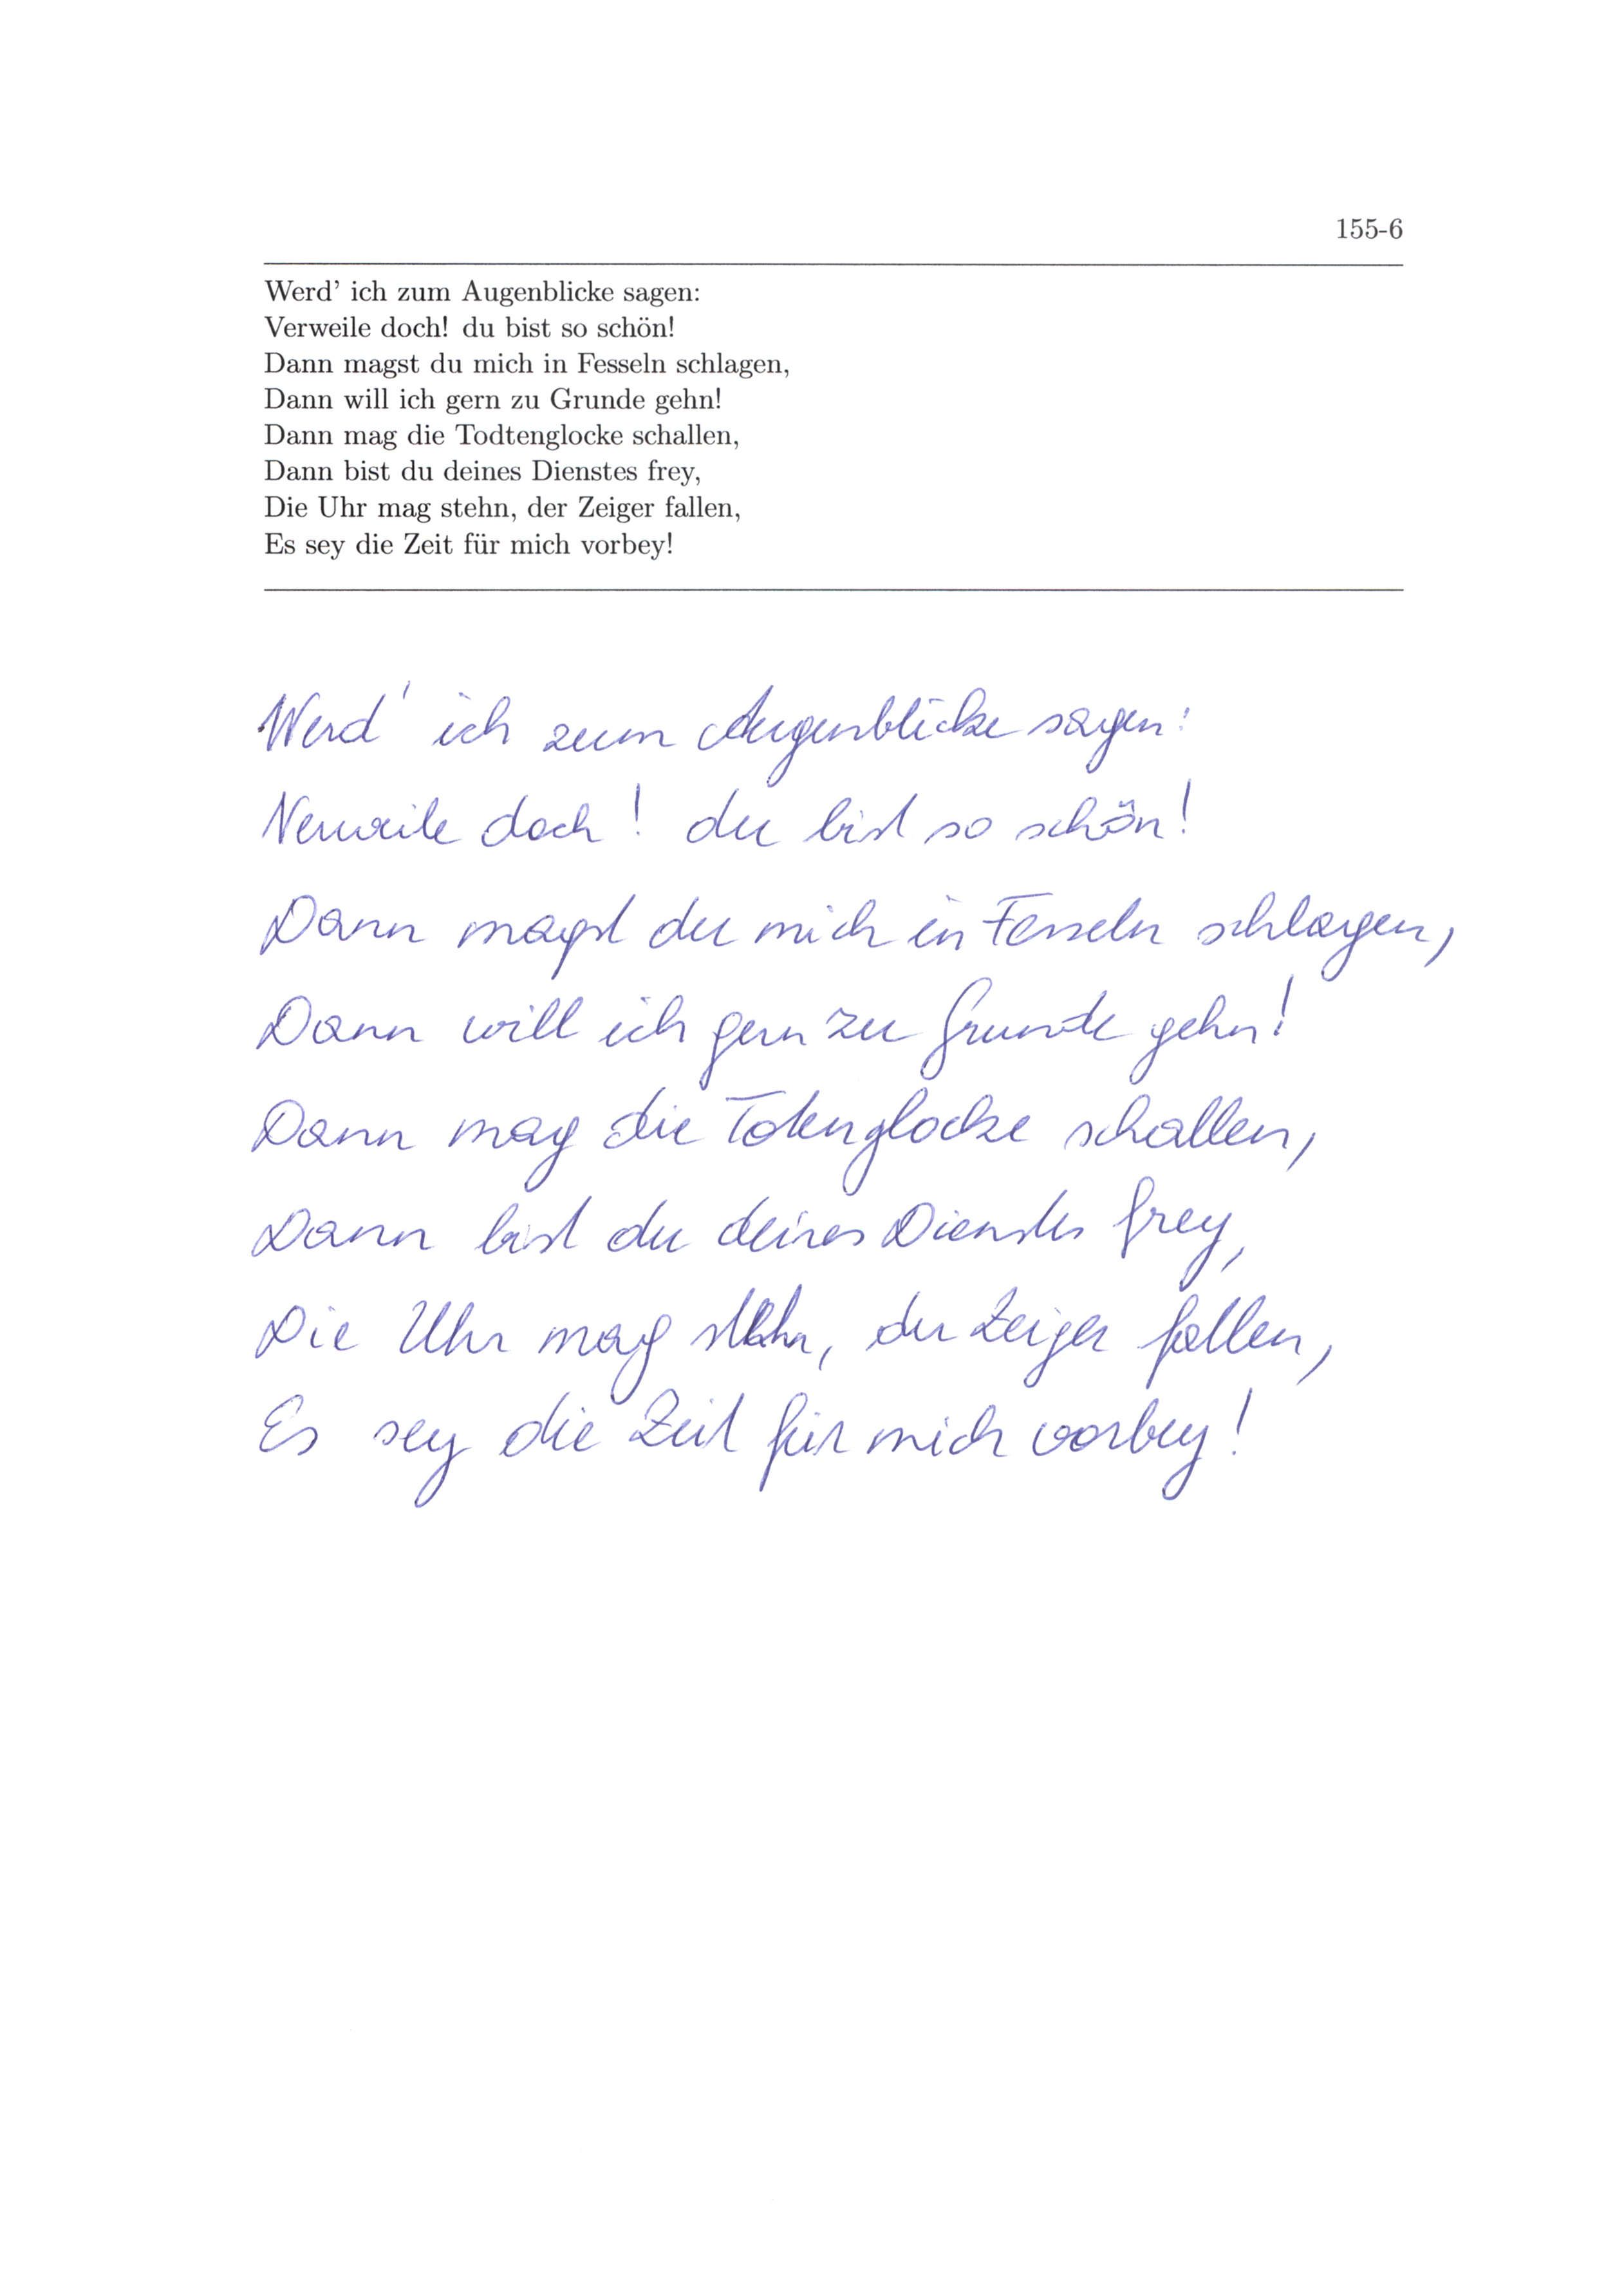 155-6
Werd' ich zum Augenblicke sagen:
Verweile doch! du bist so schön!
Dann magst du mich in Fesseln schlagen,
Dann will ich gern zu Grunde gehn!
Dann mag die Todtenglocke schallen,
Dann bist du deines Dienstes frey,
Die Uhr mag stehn, der Zeiger fallen,
Es sey die Zeit für mich vorbey!
Werd' ich zum Augenblicke sagen:
Verweile doch! du bist so schön!
Dann magst du mich in Fesseln schlagen,
Dann will ich gern zu Grunde gehn!
Dann mag die Totenglocke schallen,
Dann bist du deines Dienstes frey,
Die Uhr mag stehn, der Zeiger fallen,
Es sey die Zeit für mich vorbey!